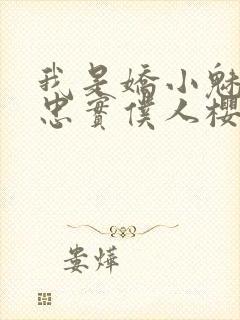 我是嬌小魅
忠實僕人櫻
婁燁